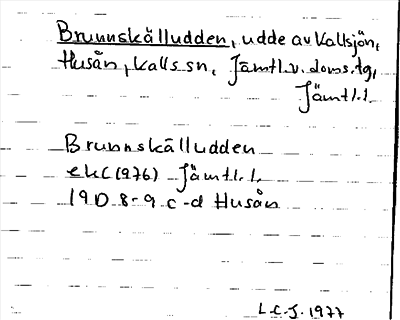 Brunnskälludden, udde av Kallsjön,
Husån, Kalls sn, Jämtl. v. doms. tg,
Jämtl. l.
Brunnskälludden
ek (1976) Jämtl. l.
19D 8-9 c-d Husån
L.C.J. 1977